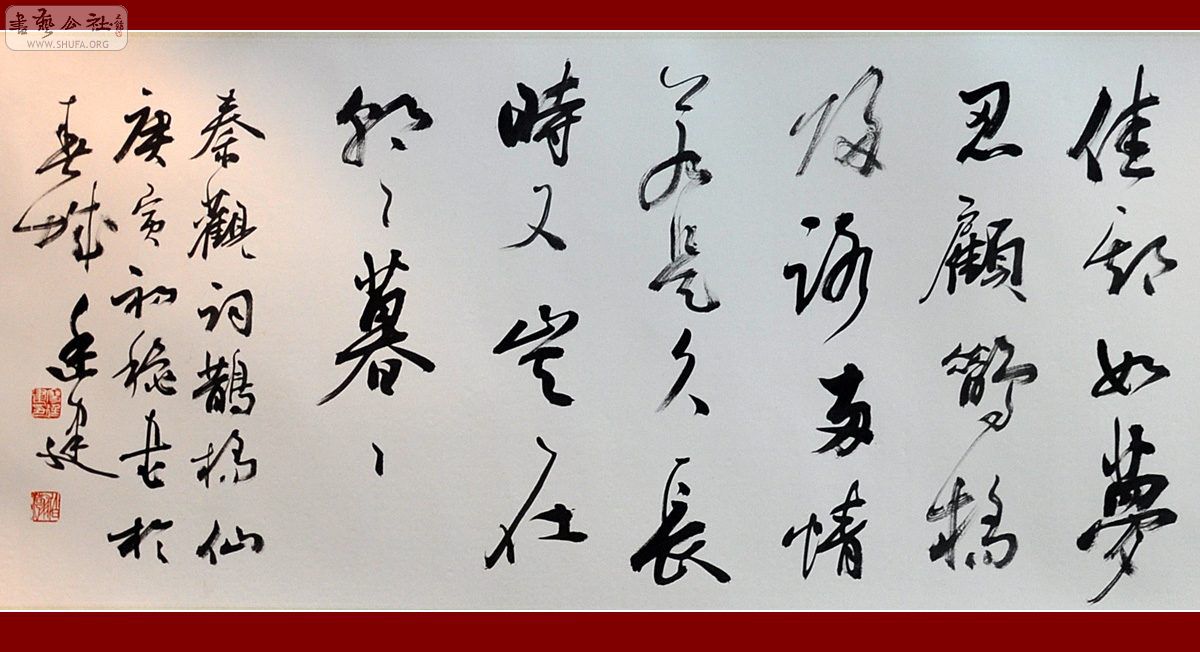 書藝公社
WWW.SHUFA.ORG
佳期如夢
忍顧鵲橋
歸路兩情
若是久長
時又豈在
朝〻暮〻
秦觀詞鵲橋仙
庚寅初秋書於
春城